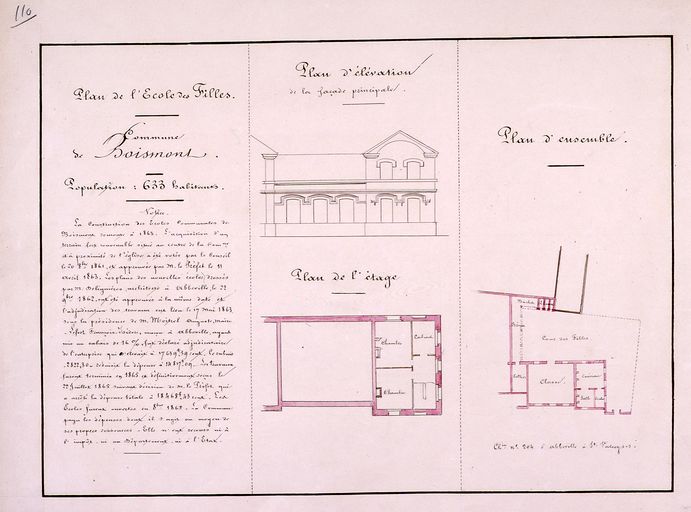 110
Plan de l'Ecole des Filles.
Commune
de Boismont.
Population : 633 habitants.
Notice.
La Construction des Ecoles Communales de
Boismont remonte à 1863. L'acquisition d'un
terrain situé au centre de la Comne
et à proximité de l'église a été votée par le Conseil
le 20 1861, et approuvée par M. le Préfet le 11
Avril 1863. Les plans des nouvelles écoles, dressés
par M. architecte à Abbeville, le 22
1862, ont été approuvés à la même date et
l'adjudication des travaux eut lieu le 17 Mai 1863
sous la présidence de M. Maire
maçon à Abbeville, ayant
mis un rabais de 16 % fut déclaré adjudicataire
de l'entreprise qui
réduisit la dépense à Les travaux
furent terminés en 1865 et définitivement reçus le
22 Juillet 1868 suivant décision de M. le Préfet, qui
a arrêté la dépense totale à Les
Ecoles furent ouvertes en 8bre 1865. La Commune
paya les dépenses dont il s'agit au moyen de
ses propres ressources. Elle n'eut recours ni à
l'impôt, ni au Département, ni à l'Etat.
Plan d'élévation
de la façade principale.
Plan de l'étage
Chambre
Cabinet
Chambre
Plan d'ensemble.
Bûcher
Préau
Cour des Filles
Classe
Cuisine
Salle
Chin n° 204 d'Abbeville à St Valery